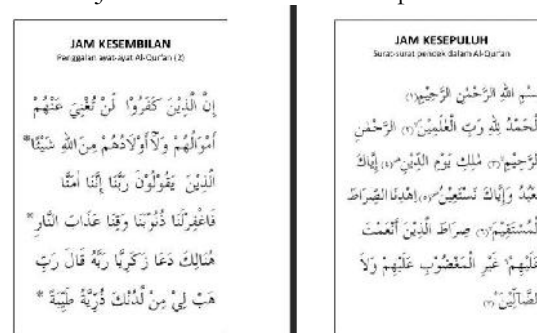 JAM KESEMBILAN
Penggalan ayat-ayat Al-Qur'an (2)
إِنَّ الَّذِيْنَ كَفَرُوْا لَنْ تُغْنِيَ عَنْهُمْ
أَمْوَالُهُمْ وَلَآ أَوْلَادُهُمْ مِنَ اللهِ شَيْئًا *
الَّذِيْنَ يَقُوْلُوْنَ رَبَّنَا إِنَّنَا آمَنَّا
فَاغْفِرْلَنَا ذُنُوْبَنَا وَقِنَا عَذَابَ النَّارِ *
هُنَالِكَ دَعَا زَكَرِيَّا رَبَّهُ قَالَ رَبِّ
هَبْ لِيْ مِنْ لَّدُنْكَ ذُرِّيَّةً طَيِّبَةً *
JAM KESEPULUH
Surat-surat pendek dalam Al-Qur'an
سْمِ اللهِ الرَّحْمٰنِ الرَّحِيْمِ (١)
لْحَمْدُ لِلّٰهِ رَبِّ الْعٰلَمِيْنَ (٢) الرَّحْمٰنِ
لرَّحِيْمِ (٣) مٰلِكِ يَوْمِ الدِّيْنِ (٤) إِيَّاكَ
نَعْبُدُ وَإِيَّاكَ نَسْتَعِيْنُ (٥) اِهْدِنَا الصِّرَاطَ
لْمُسْتَقِيْمَ (٦) صِرَاطَ الَّذِيْنَ أَنْعَمْتَ
عَلَيْهِمْ غَيْرِ الْمَغْضُوْبِ عَلَيْهِمْ وَلَا
لضَّآلِّيْنَ (٧)